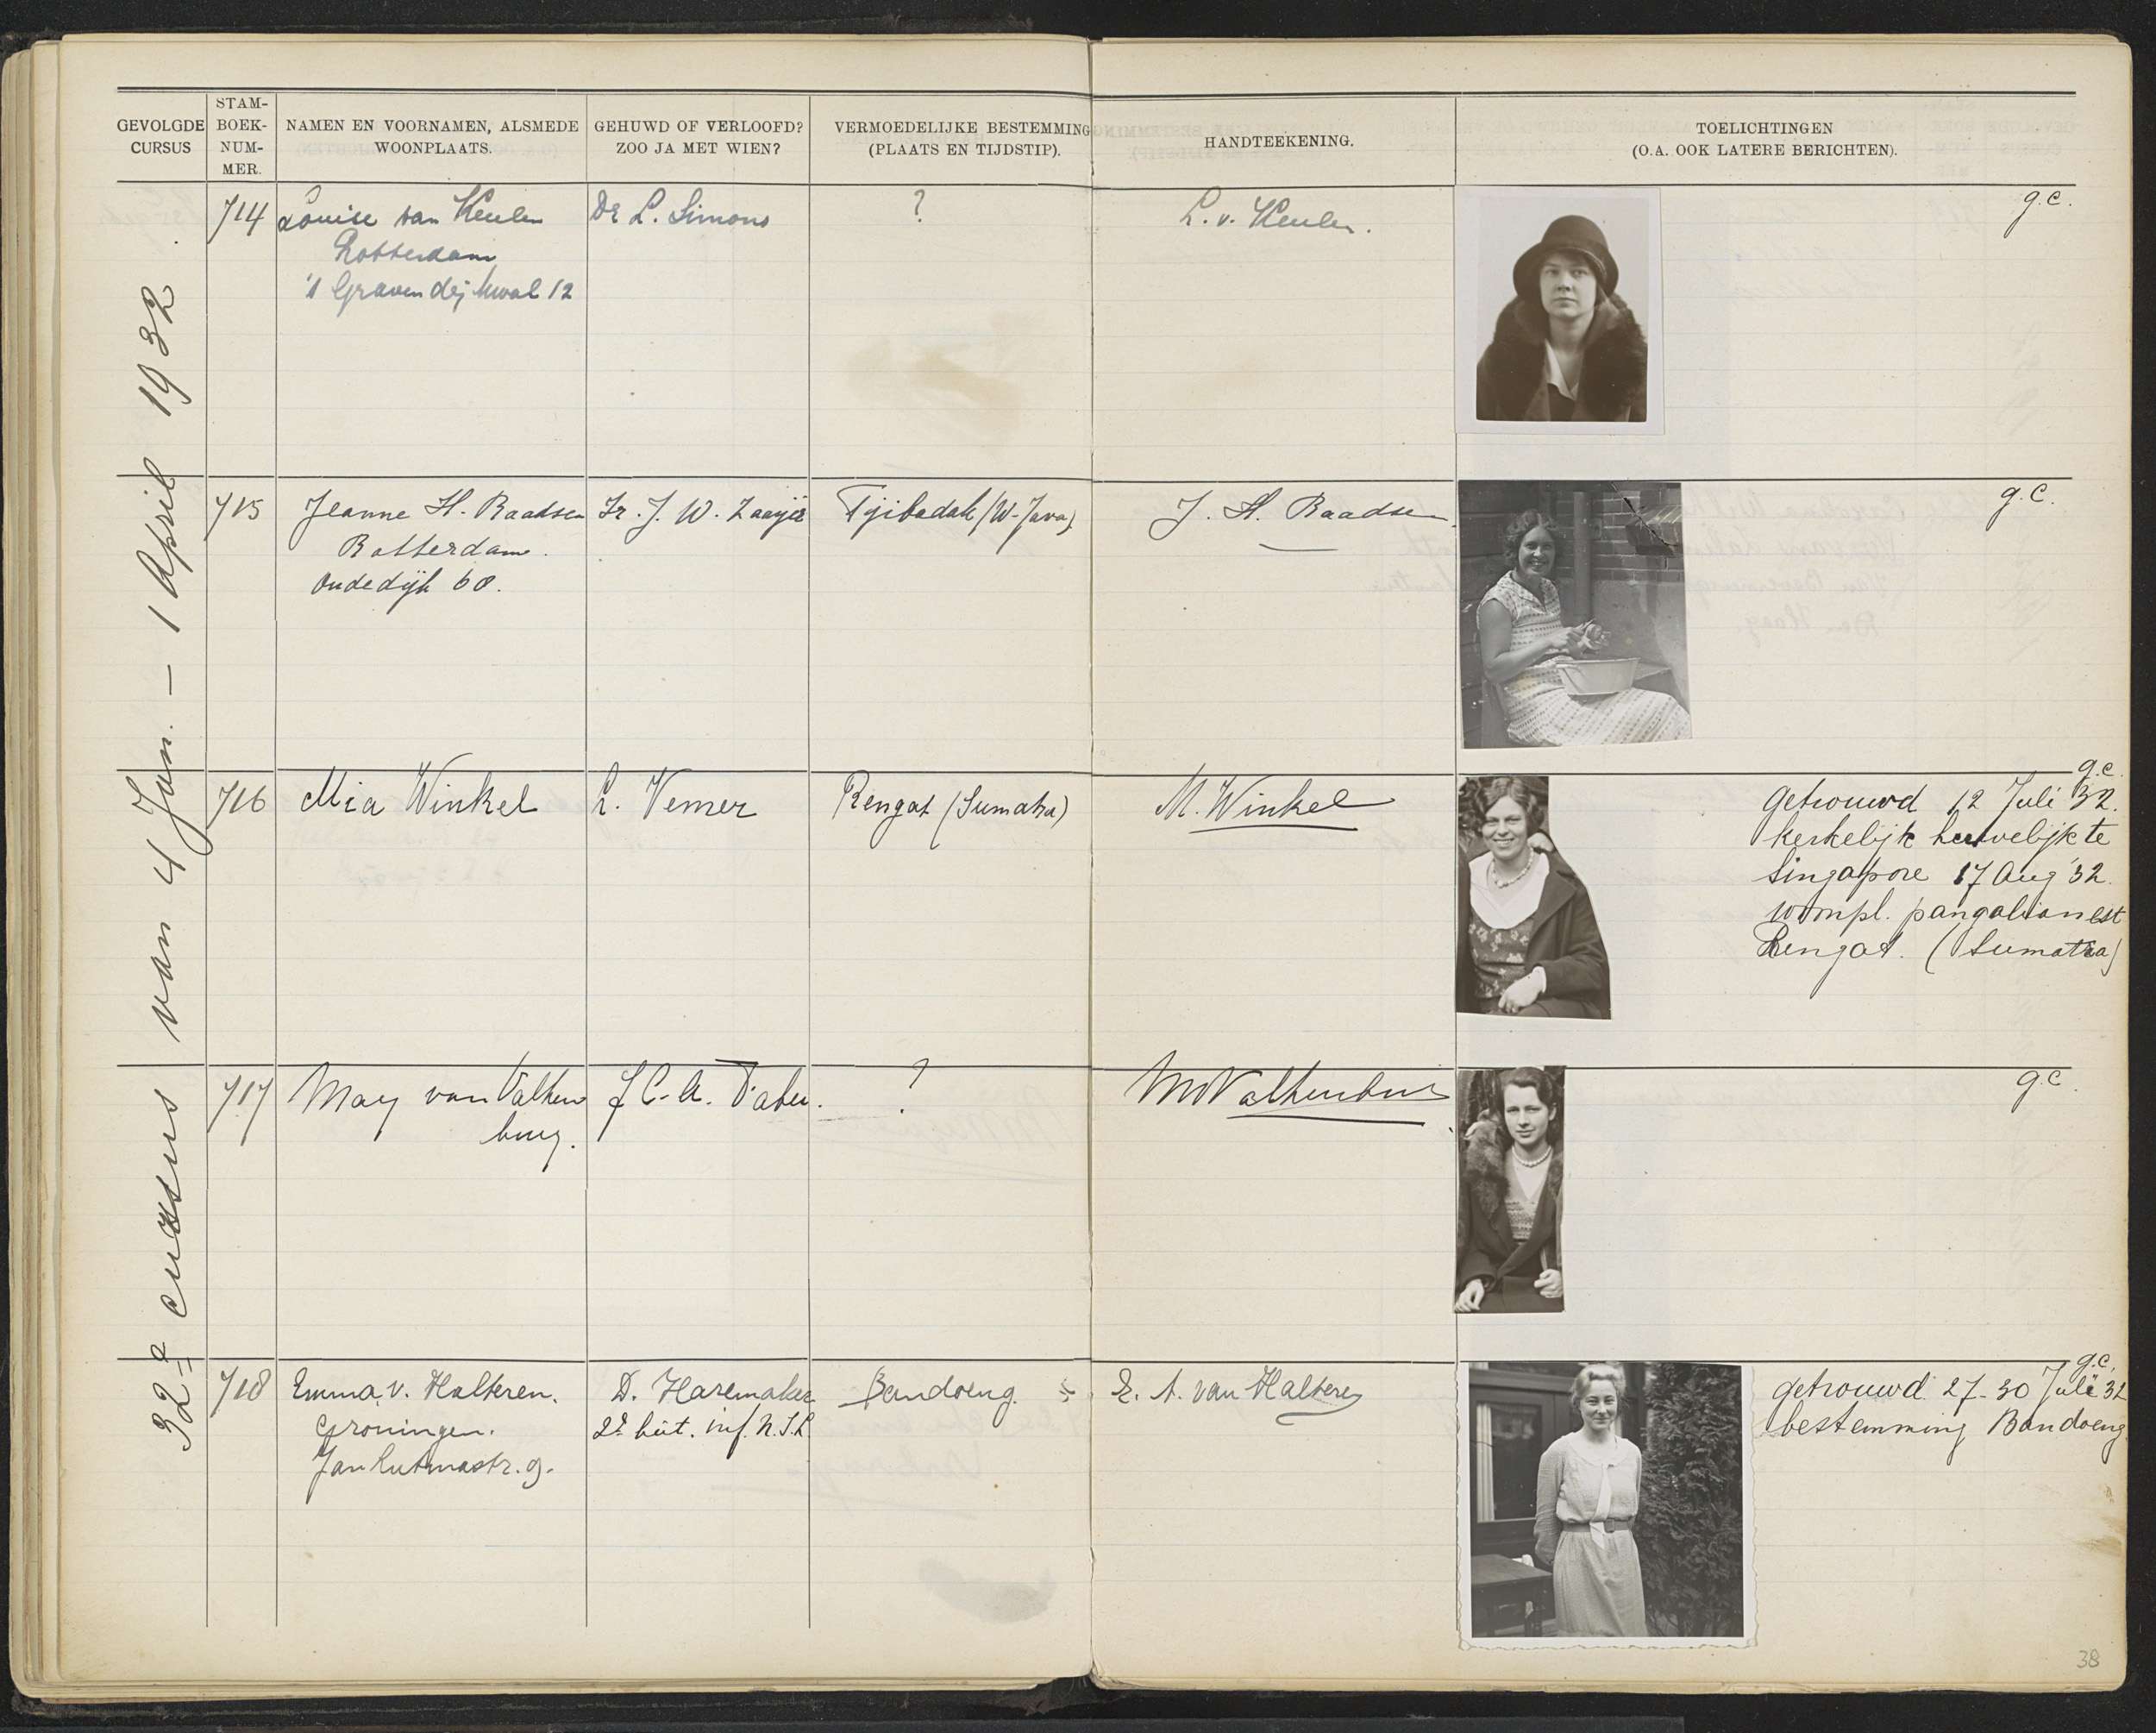 GEVOLGDE CURSUS
STAM-BOEK-NUM-MER.
NAMEN EN VOORNAMEN, ALSMEDE WOONPLAATS.
GEHUWD OF VERLOOFD? ZOO JA MET WIEN?
VERMOEDELIJKE BESTEMMING (PLAATS EN TIJDSTIP).
HANDTEEKENING.
TOELICHTINGEN (O.A. OOK LATERE BERICHTEN).
32e cursus van 4 Jan. - 1 April 1932.
714 Louise van Keulen Dr L. Simons ? L. v. Keulen. g.c.
Rotterdam
's Gravendijkwal 12
715 Jeanne H. Raadsen Ir. J. W. Zaayer Tjibadak (W-Java) J. H. Raadsen g.c.
Rotterdam.
Oudedijk 60.
g.c.
716 Mia Winkel L. Vemer Rengat (Sumatra) M. Winkel getrouwd 12 Juli '32.
kerkelijk huwelijk te
Singapore 17 Aug '32.
woonpl. pangalian est
Rengat. (Sumatra)
717 May van Valken J C. A. Faber. ? g.c.
burg.
g.c.
718 Emma v. Halteren. D. Haremaker Bandoeng. E. A. van Halteren getrouwd 27-30 Juli 32
Groningen. 2e luit. inf. N.I.L. bestemming Bandoeng
Jan Lutmastr. 9.
38